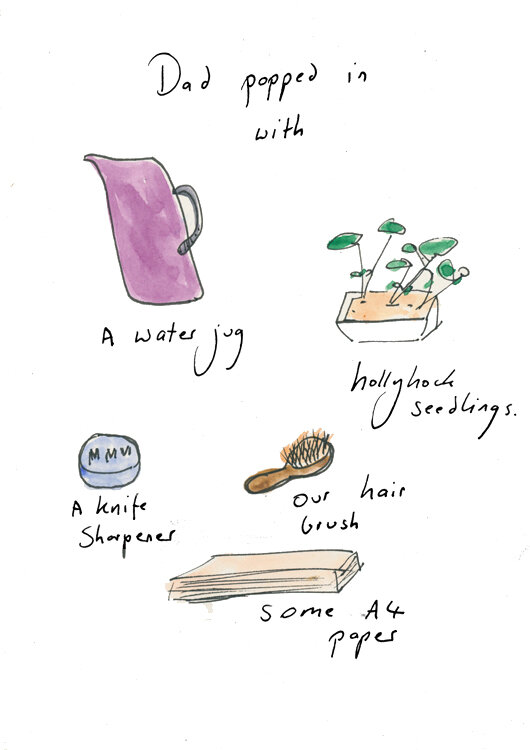 Dad popped in
with
A water jug
hollyhock
seedlings.
A knife
Sharpener
our hair
brush
some A4
paper